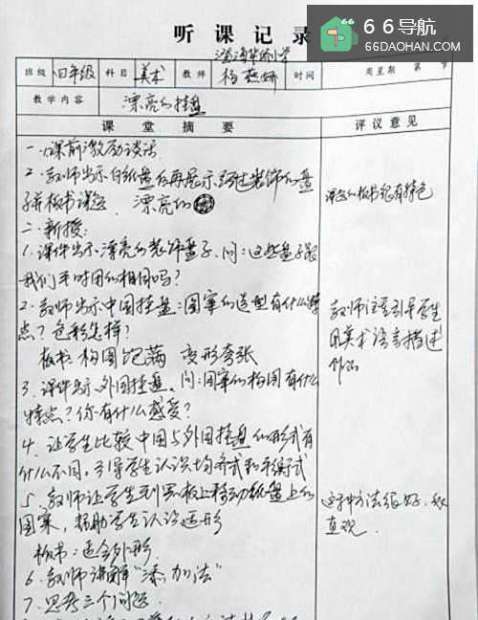 66导航
66DAOHAN.COM
听课记录
班级 四年级 科目 美术 教师 杨 时间 周星期 第 节
教学内容 漂亮的挂盘
课堂摘要 评议意见
一、课前激励谈话
2. 教师出示白纸盘后再展示经过装饰的盘
子并板书课题 漂亮的
课题的板书很有特色
二、新授:
1. 课件出示漂亮的装饰盘子、问:这些盘子跟
我们平时用的相同吗?
2. 教师出示中国挂盘:图案的造型有什么特
点?色彩怎样?
教师注意引导学生
用美术语言描述
作品
板书:构图饱满 变形夸张
3. 课件出示外国挂盘、问:图案的构图有什么
特点?你有什么感受?
4. 让学生比较中国与外国挂盘的形式有
什么不同,引导学生认识均齐式和平衡式
5. 教师让学生到黑板上移动纸盘上的
图案,帮助学生认识适形
这种方法很好、
直观.
板书:适合外形.
6. 教师讲解“添加法”
7. 思考三个问题.